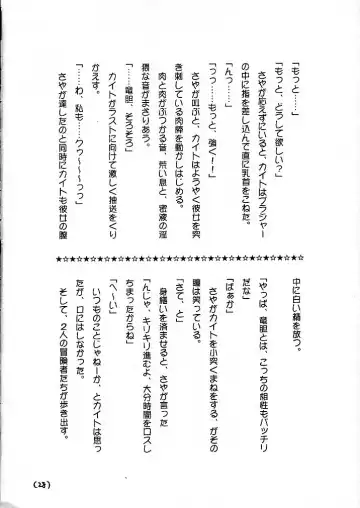 「もっと……」
「もっと、どうして欲しい?」
さやが応えずにいると、カイトはブラジャー
の中に指を差し込んで直に乳首をこねた。
「んっ……」
「つっ……もっと、強く!!」
さやが叫ぶと、カイトはようやく彼女を突
き刺している肉棒を動かしはじめる。
肉と肉がぶつかる音、荒い息と、密液の淫
猥な音がまざりあう。
「……竜胆、そろそろ」
カイトがラストに向けて激しく抽送をくり
かえす。
「……わ、私も……クゥ〜〜〜っっ」
さやが達したのと同時にカイトも彼女の膣
☆☆☆☆☆☆☆☆☆☆☆☆☆☆☆☆☆☆☆☆☆☆☆☆☆☆☆☆
中に白い精を放つ。
「やっぱ、竜胆とは、こっちの相性もバッチリ
だな」
「ばぁか」
さやがカイトを小突くまねをする、がその
瞳は笑っている。
「さて、と」
身繕いを済ませると、さやが言った
「んじゃ、キリキリ進むよ、大分時間をロスし
ちまったからね」
「へ〜い」
いつものことじゃねーか、とカイトは思っ
たが、口にはしなかった。
そして、2人の冒険者たちが歩き出す。
(23)